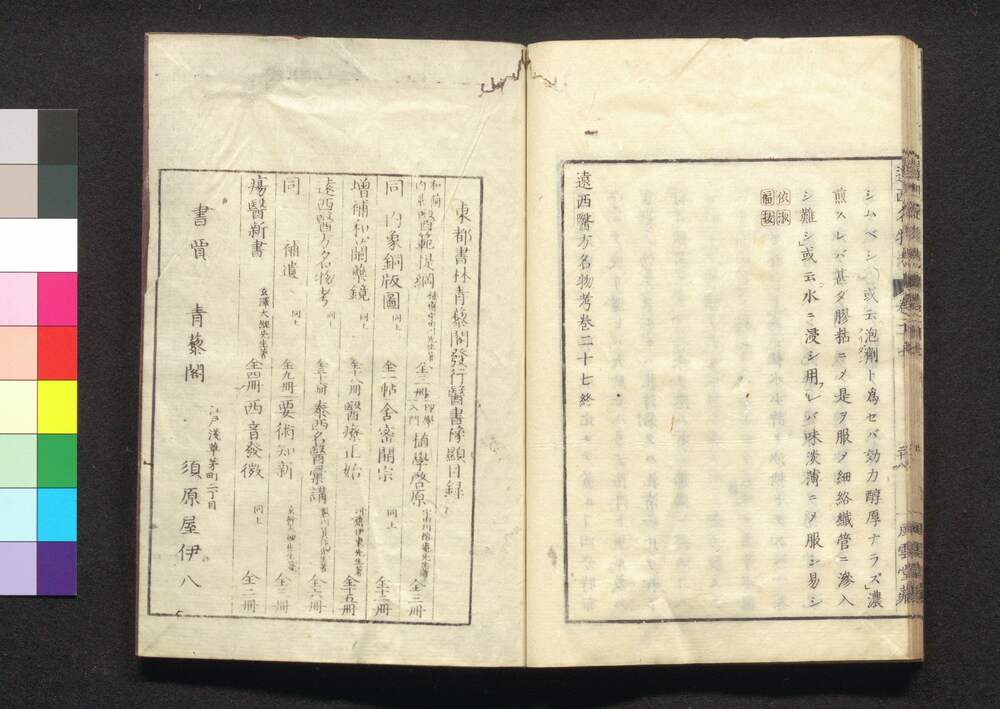 シムベシ或云泡劑ト爲セバ効力醇厚ナラズ」濃
煎スレバ甚ダ膠粘ニメ是ヲ服ヲ細絡纖管ニ滲入
シ難シ」或云水ニ浸シ用フレバ味淡薄ニメ服シ易シ
遠西醫方名物考巻二十七終
風雲堂藏
東都書林青藜閣發行醫書像顕目録
和蘭内景醫範提綱 全三冊 理學入門植學啓原 宇田川榕菴先生著 全三冊
同内象銅版圖 同上 全一帖 舎密開宗 同上 全十二冊
増補和蘭藥鏡 同上 全十八冊 醫療正始 伊東先生著 全十五冊
遠西醫方名物考 同上 泰西名醫彙講 全六冊
同補遺 同上 全九冊 要術知新 全三冊
瘍醫新書 大槻先生著 全四冊 西音發微 同上 全二冊
書賈 青藜閣 江戸淺草茅町二丁目 須原屋伊八